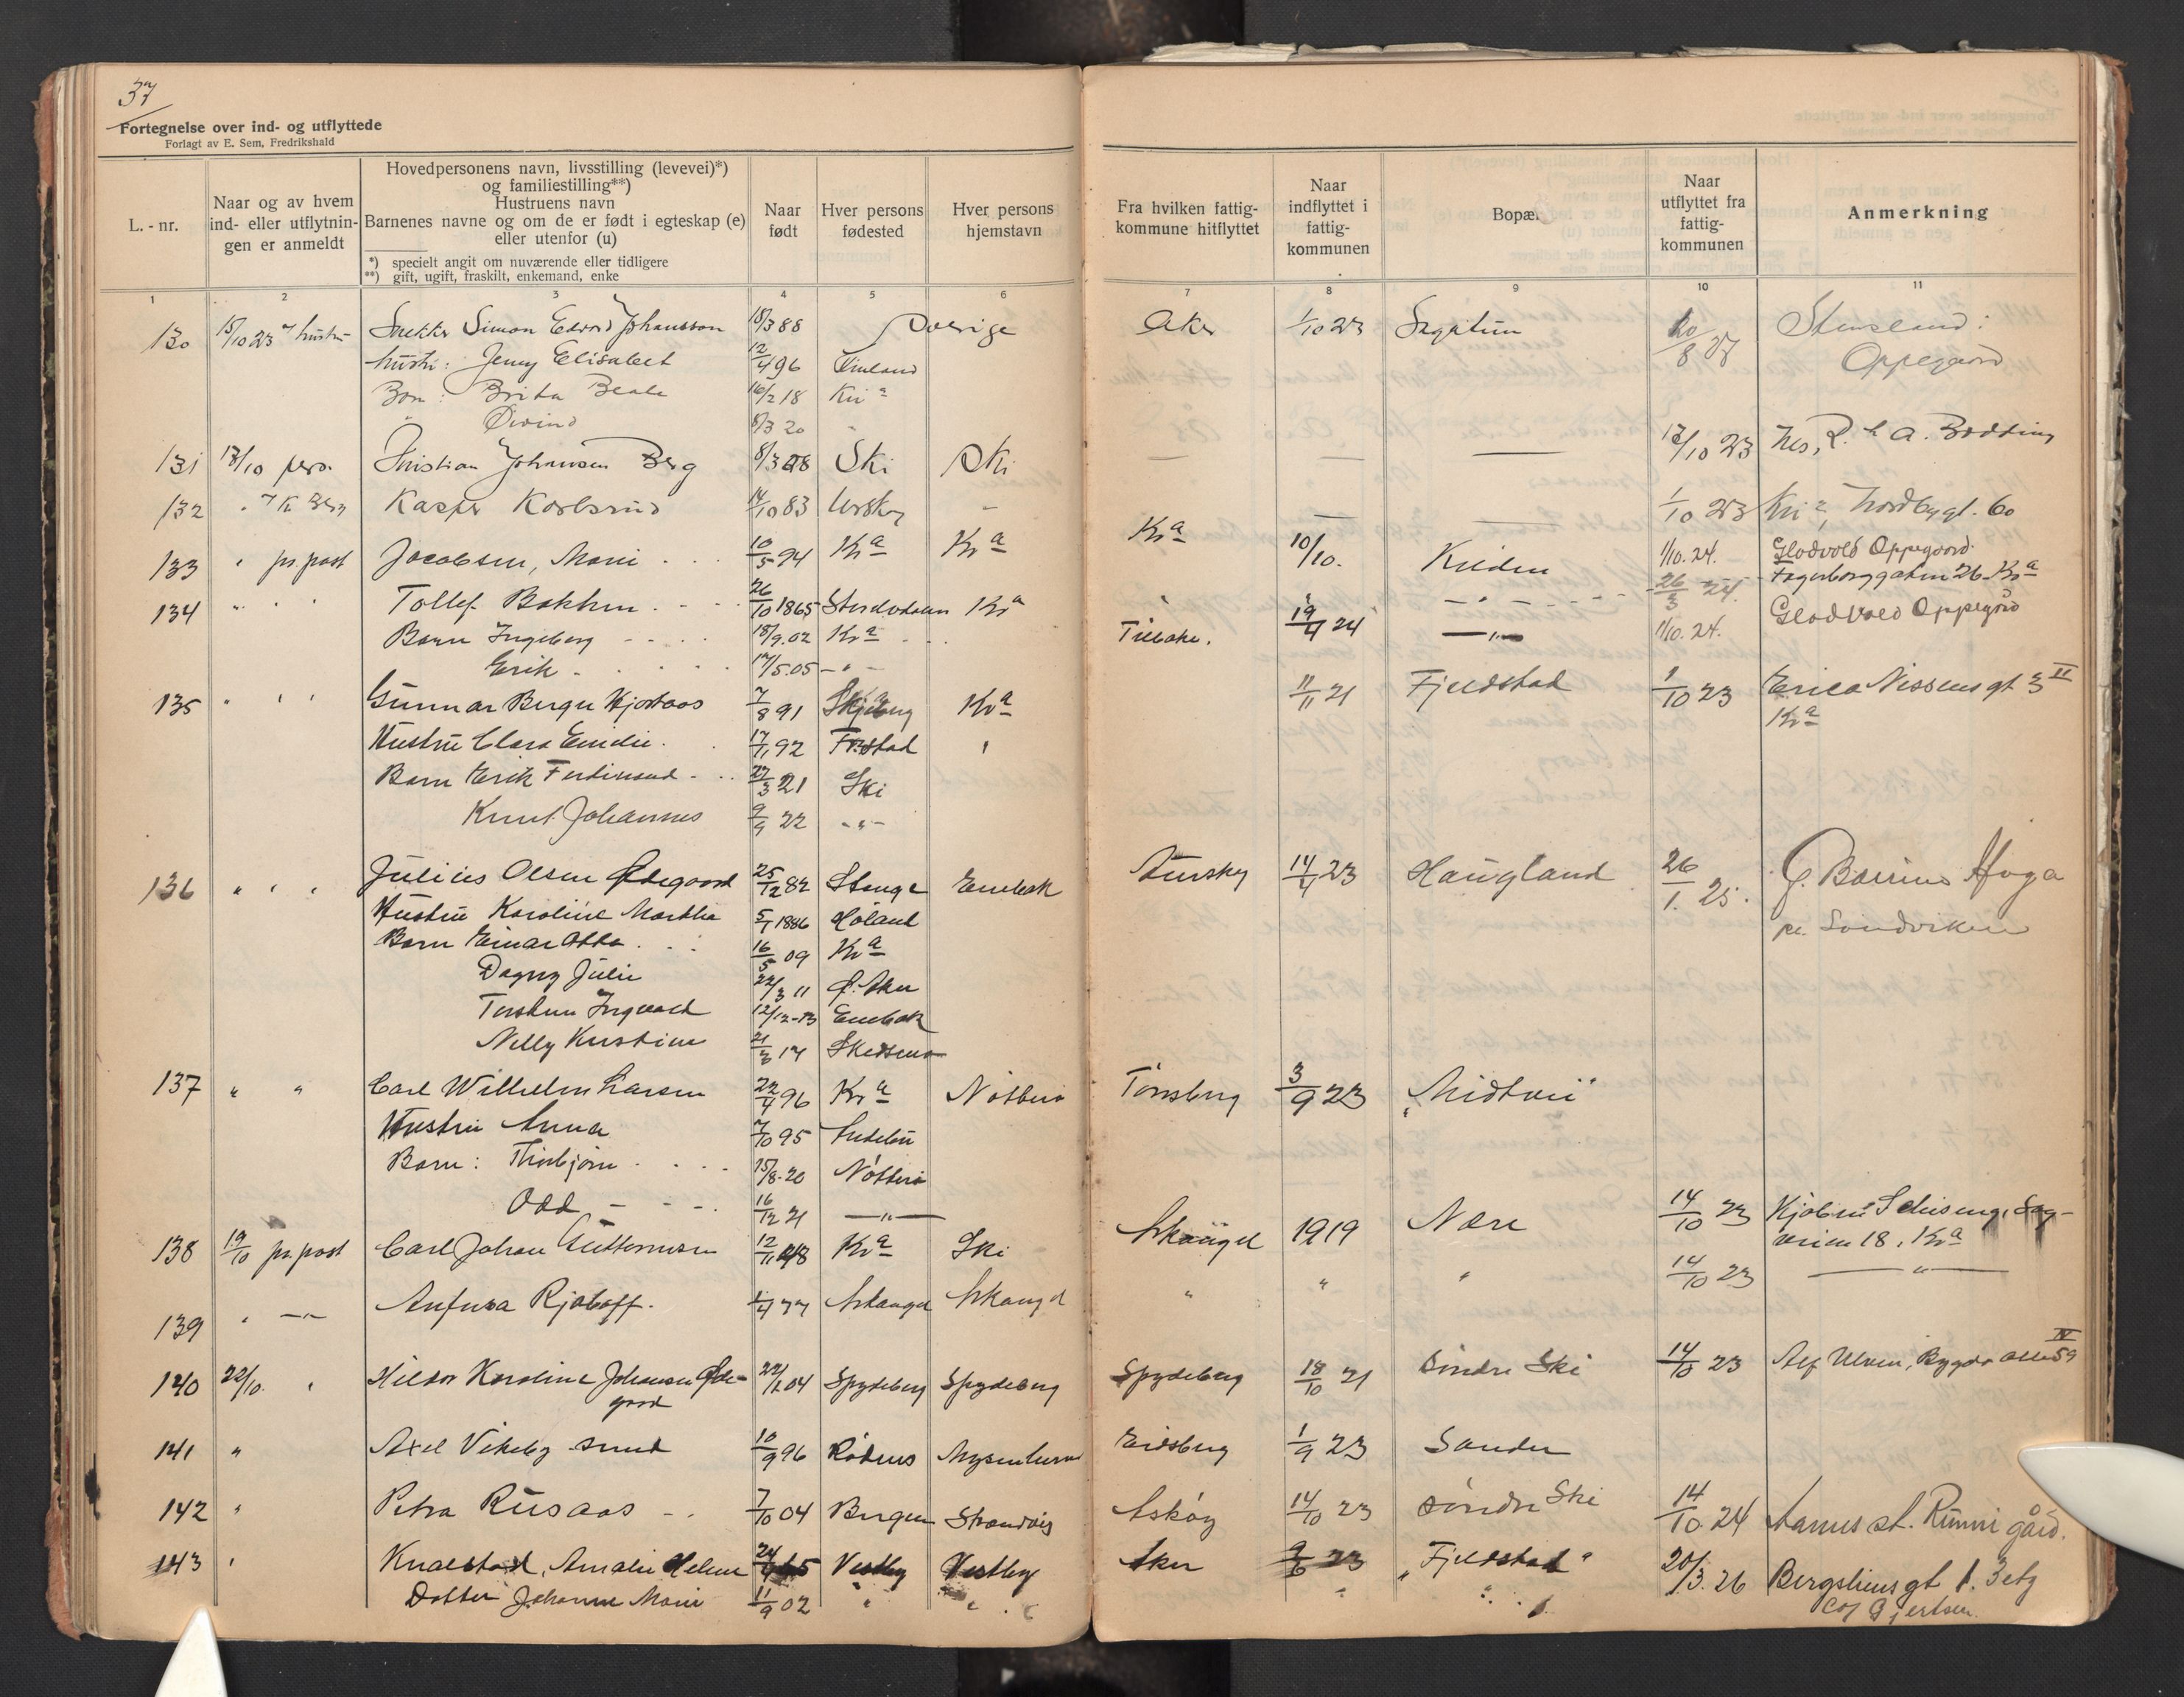 37
Fortegnelse over ind- og utflyttede
Forlagt av E. Sem, Fredrikshald
L. - nr.
Naar og av hvem ind- eller utflytningen er anmeldt
Hovedpersonens navn, livsstilling (levevei)*)
og familiestilling**)
Hustruens navn
Barnenes navne og om de er født i egteskap (e)
eller utenfor (u)
*) specielt angit om nuværende eller tidligere
**) gift, ugift, fraskilt, enkemand, enke
Naar født
Hver persons fødested
Hver persons hjemstavn
Fra hvilken fattigkommune hitflyttet
Naar indflyttet i fattigkommunen
Naar utflyttet fra fattigkommunen
Anmerkning
1 2 3 4 5 6 7 8 9 10 11
130 15/10 23 Snekker Simon Edvard Johansson 18/3 88 Sverige Aker 1/10 23 Sagatun 20/8 27 Stensland:
hustr: Jenny Elisabet 12/4 96 Finland Oppegaard
Barn: Brita Beate 16/2 18 Kr a
" Øivind 8/3 20 "
131 13/10 pers. Kristian Johansen Berg 8/3 Ski Ski — — — 13/10 23 Nes, R.
132 " Kasper Karlsrud 14/10 83 Urskog " — — 1/10 23 Kr a, Nordbygt. 60
133 " pr. post Jacobsen, Marie 10/5 94 Kr a Kr a Kr a 10/10. Kilden 1/10. 24. Gladvold Oppegaard.
134 " " " Tollef Bakken 26/10 1865 Kr a " " — " — 26/3 24. Fagerborggaten 26 Kr a
Barn Ingeborg 18/9.02 Kr a Tilbake. 19/4 24 — " — 1/10. 24. Gladvold Oppegård
Erik 17/5.05 — " —
135 " " " Gunnar Berger Hjortaas 7/8 91 Skjeberg Kr a 11/11 21 Fjeldstad 1/10 23 Erica Nissens gt 3 II
Hustru Clara Emilie. 17/1 92 Fr.stad " Kr a
Barn Erik Ferdinand 27/3 21 Ski
Knut Johannes 9/9 22 — " —
136 " " " Julius Olsen Ødegaard 25/12 82 Stange Enebak Aurskog 14/4 23 Haugland 26/1. 25.
Hustru Karoline Marthe 5/7 1886 Høland pr. Sandviken
Barn Einar Otto 16/5 09 Kr a
Dagny Julie 22/3 11 Ø. Aker
Torstein Ingvald 12/12-13 Enebak
Nelly Kristine 21/3 17 Skedsmo
137 " " Carl Wilhelm Larsen 22/4 96 Kr a Nøtterø Tønsberg 3/9 23 "Midtvei"
Hustru Anna 7/10 95
Barn: Thorbjørn 15/8-20 Nøtterø
Odd 16/12 21 — " —
138 19/10 pr. post Carl Johan Guttormsen 12/11 48 Kr a Ski Arkangel 1919 Nære 14/10 23 Sagveien 18, Kr a
139 " — " — Anfusa Rjaboff. 1/4 77 Arkangel Arkangel " " " 14/10 23 — " —
140 22/10. " Hildor Karoline Johansen Ødegaard 22/1 04 Spydeberg Spydeberg Spydeberg 18/10 21 Søndre Ski 14/10 23 Alf Ulven, Bygdø alle 59 IV
141 " Axel Vikeby smed 10/9 96 Rødenes Eidsberg 1/9 23 Sander
142 " Petra Rusaas 7/10 04 Bergen Strandvig Askøy 14/10 23 Søndre Ski 14/10. 24
143 " Knalstad, Amalie Helene 24/4 65 Vestby Vestby Aker 9/6 23 "Fjeldstad" 20/3. 26 Bergsliens gt 1. 3 etg
Datter Johanne Marie 11/9 02 " " " " c/o Gjertsen.